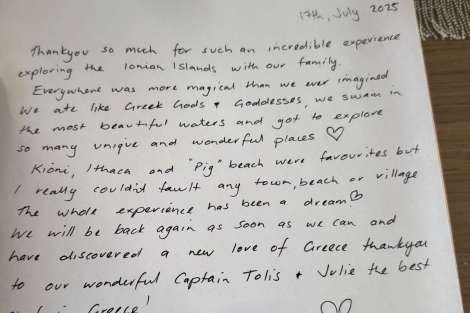 17th, July 2025
Thankyou so much for such an incredible experience
exploring the Ionian Islands with our family.
Everywhere was more magical than we ever imagined
We ate like Greek Gods & Goddesses, we swam in
the most beautiful waters and got to explore
so many unique and wonderful places ♡
Kioni, Ithaca and "Pig" beach were favourites but
I really couldn't fault any town, beach or village
The whole experience has been a dream ♡
We will be back again as soon as we can and
have discovered a new love of Greece thankyou
to our wonderful Captain Tolis & Julie the best
in Greece!